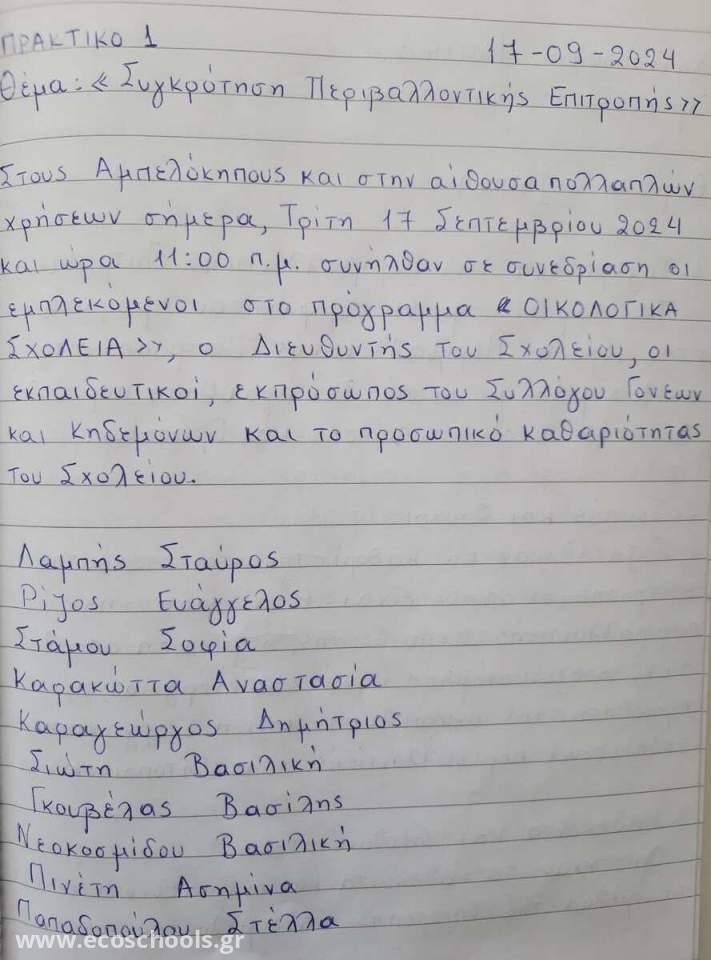 ΠΡΑΚΤΙΚΟ 1 17-09-2024
Θέμα: « Συγκρότηση Περιβαλλοντικής Επιτροπής»
Στους Αμπελόκηπους και στην αίθουσα πολλαπλών
χρήσεων σήμερα, Τρίτη 17 Σεπτεμβρίου 2024
και ώρα 11:00 π.μ. συνήλθαν σε συνεδρίαση οι
εμπλεκόμενοι στο πρόγραμμα « ΟΙΚΟΛΟΓΙΚΑ
ΣΧΟΛΕΙΑ», ο Διευθυντής του Σχολείου, οι
εκπαιδευτικοί, εκπρόσωπος του Συλλόγου Γονέων
και Κηδεμόνων και το προσωπικό καθαριότητας
του Σχολείου.
Λαμπής Σταύρος
Ρίζος Ευάγγελος
Στάμου Σοφία
Καρακώττα Αναστασία
Καραγεώργος Δημήτριος
Σιώτη Βασιλική
Γκουβέλας Βασίλης
Νεοκοσμίδου Βασιλική
Πινέτη Ασημίνα
Παπαδοπούλου Στέλλα
www.ecoschools.gr